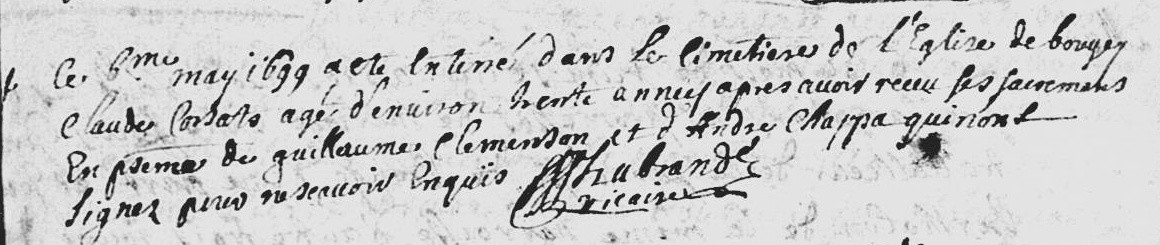 Ce 6me may 1699 a ete Enterré dans le Cimetiere de l'Eglise de
Claude agé d'environ trente années apres avoir receu ses sacremens
En psence de guillaume Clemenson et d'Andre Chappa qui n'ont
signez pour ne scavoir Enquis
vicaire